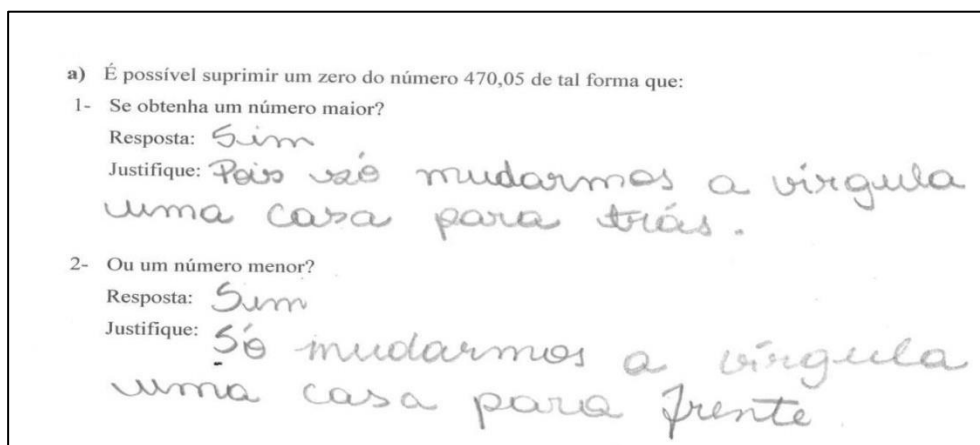 a) É possível suprimir um zero do número 470,05 de tal forma que:
1- Se obtenha um número maior?
Resposta: Sim
Justifique: Pois só mudarmos a vírgula
uma casa para trás.
2- Ou um número menor?
Resposta: Sim
Justifique: Só mudarmos a vírgula
uma casa para frente